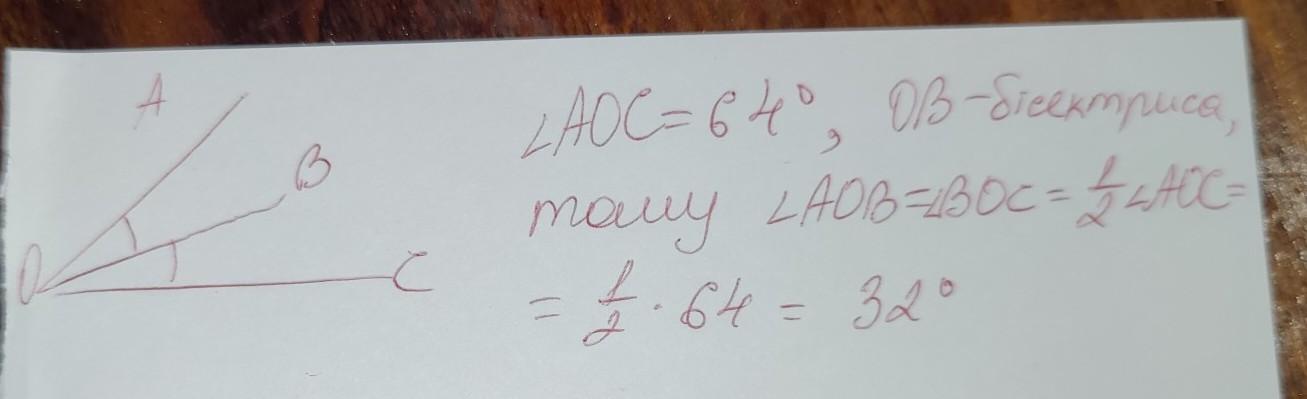 A
B
O
C
∠AOC = 64°, OB - бісектриса,
тому ∠AOB = ∠BOC = 1/2 ∠AOC =
= 1/2 · 64 = 32°